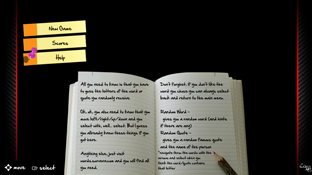 New Game
Scores
Help
All you need to know is that you have
to guess the letters of the word or
quote you randomly receive.
Oh, ok, you also need to know that you
move left/right/up/down and you
select with, well, select. But I guess
you already knew these things if you
got here.
Anything else, just visit
and you will find all
you need.
Don't forget: if you don't like the
word you choose you can always select
back and return to the main menu.
Random Word -
gives you a random word (and hints
if there are any)
Random Quote -
gives you a random famous quote
and the name of the person
*navigate thru the words with the
and select when you
think the word/quote contains
that letter
move
select